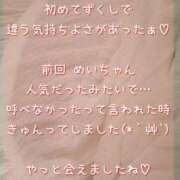 初めてずくしで
違う気持ちよさがあったぁ♡
前回 めいちゃん
人気だったみたいで…
呼べなかったって言われた時
きゅんってしました(๑´艸`)
やっと会えましたね♡